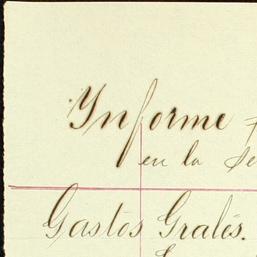 Informe
en la
Gastos Grales.